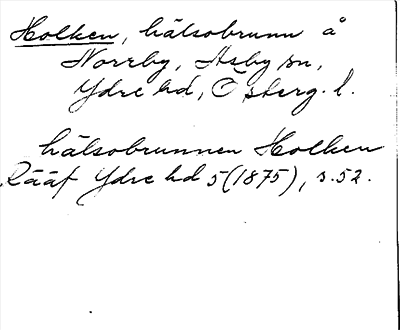 Holken, hälsobrunn å
Norrby, Asby sn,
Ydre hd, Östberg. l.
hälsobrunnen Holken
Rääf Ydre hd 5 (1875), s. 52.